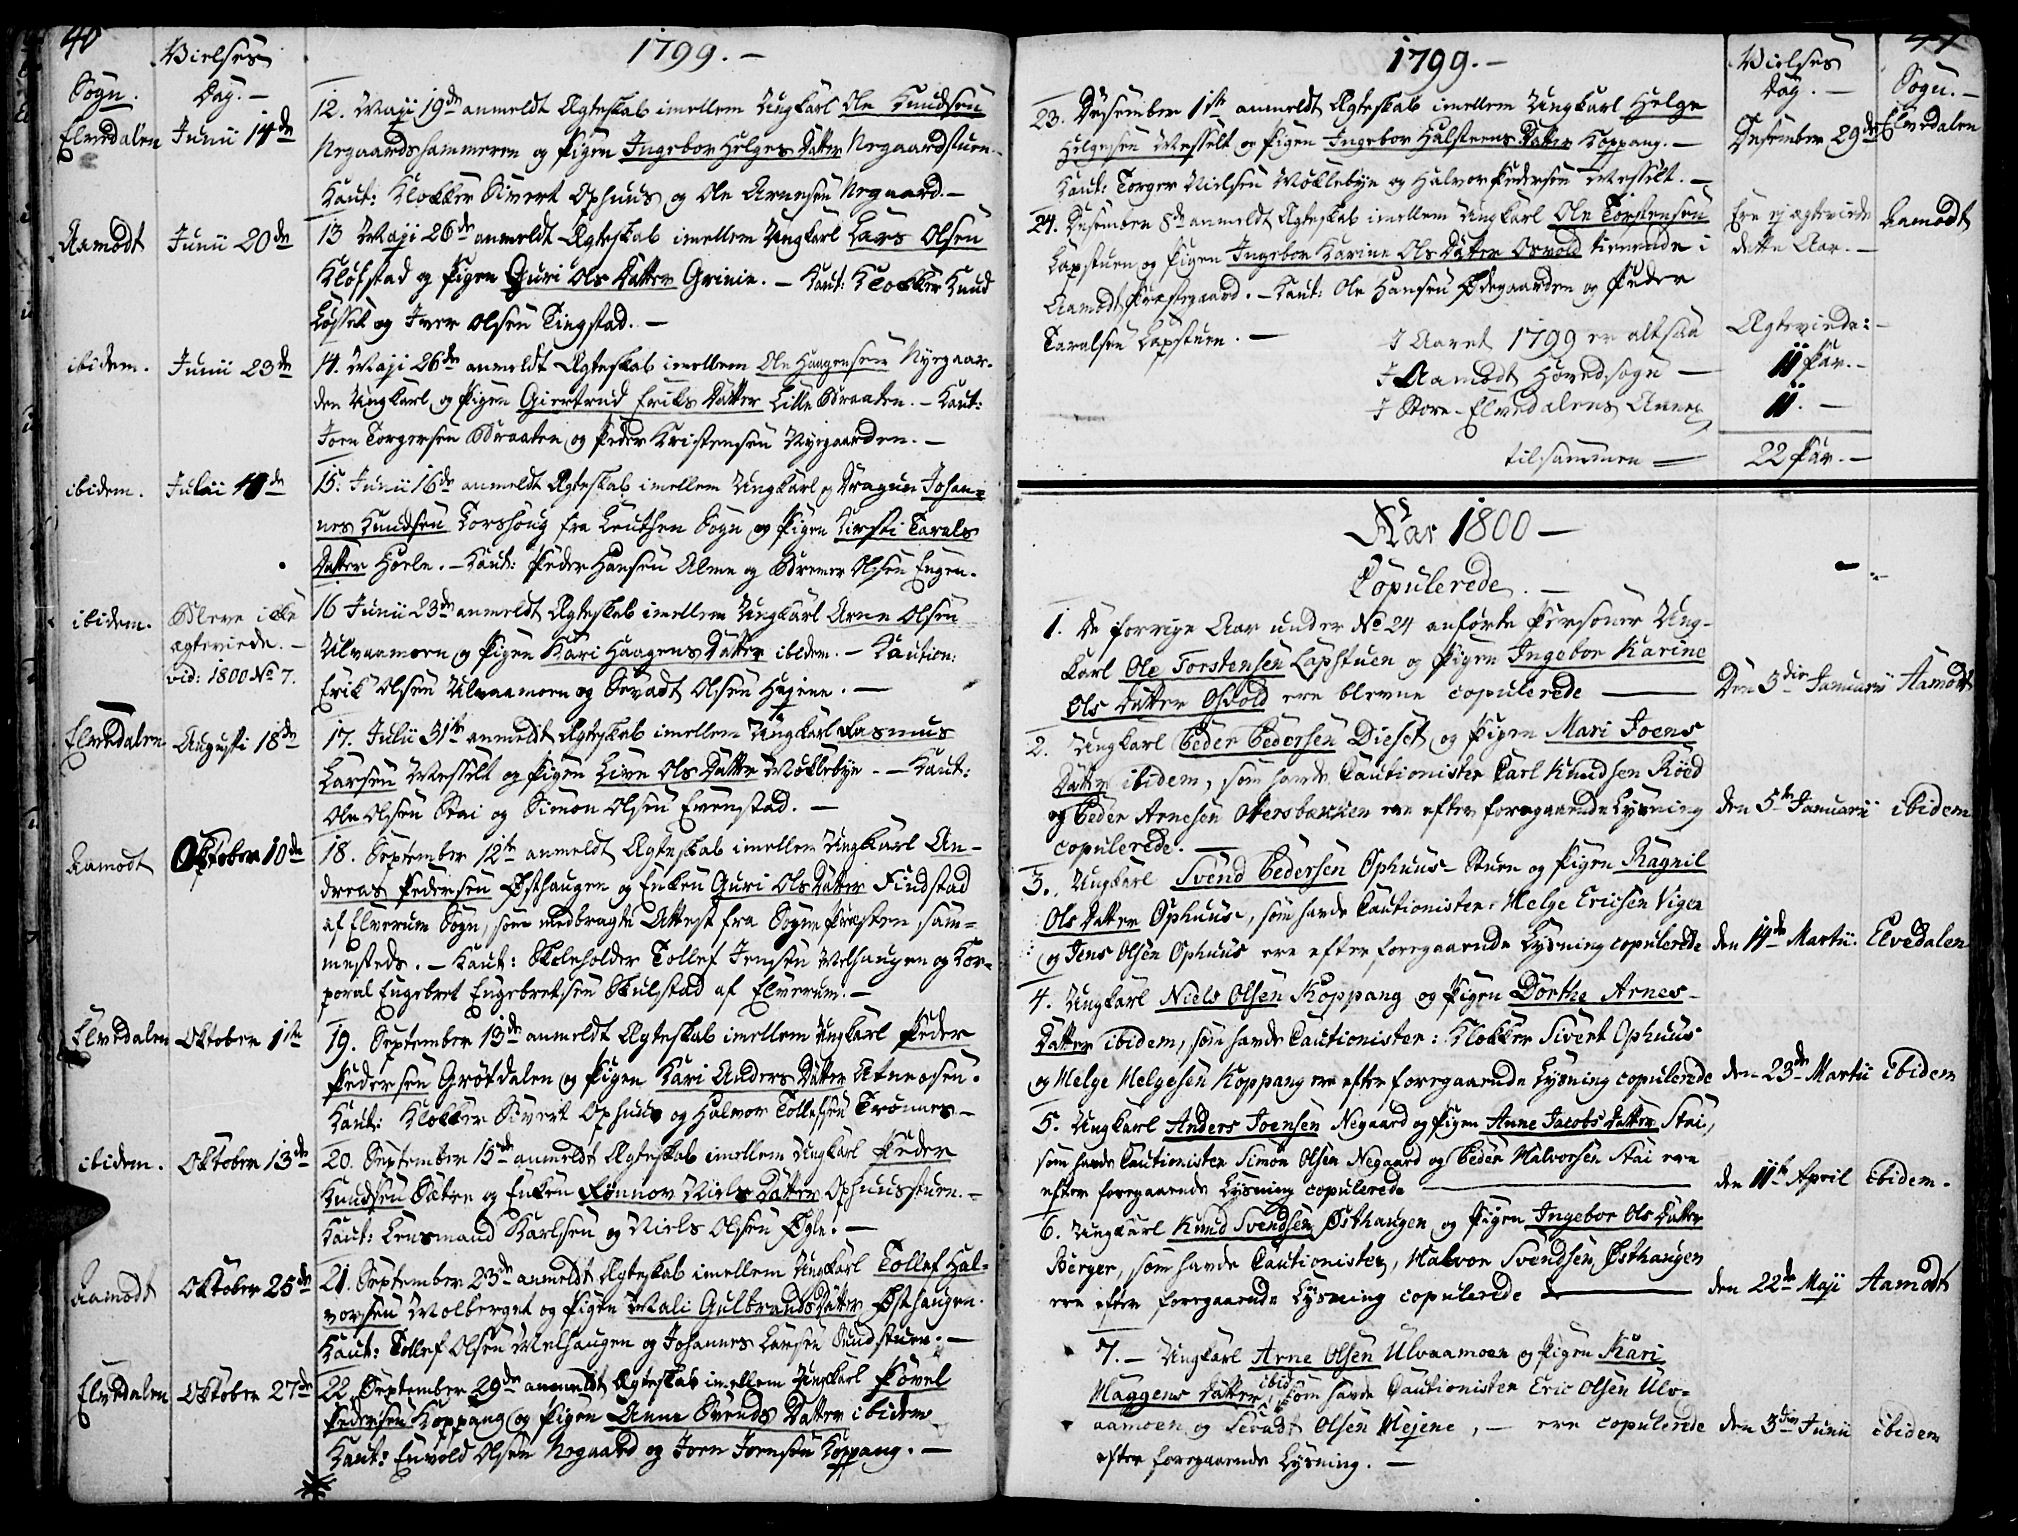 40
1799.-
Vielses
Sogn. Dag.-
Elvedalen Junii 14de 12. Maji 19de anmeldt Ægteskab imellem Ungkarl Ole Knudsen
Negaardshammeren og Pigen Ingebor Helges Datter Negaardstuen.-
Kaut: Klokker Sivert Ophuus og Ole Arnesen Negaard.-
Aamodt Junii 20de 13 Maji 26de anmeldt Ægteskab imellem Ungkarl Lars Olsen
Kløfstad og Pigen Guri Ols Datter Grinie.- Kaut: Klokker Knud
Løsset og Iver Olsen Tingstad.-
ibidem. Junii 23de 14. Maji 26de anmeldt Ægteskab imellem Ole Haagensen Nyegaar-
den Ungkarl og Pigen Giertrud Eriks Datter Lille Braaten.- Kaut:
Joen Torgersen Braaten og Peder Kristensen Nyegaarden.-
ibidem. Julii 10de 15. Junii 16de anmeldt Ægteskab imellem Ungkarl og Dragun Johan-
nes Knudsen Torshoug fra Leuthen Sogn og Pigen Kirsti Tarals
Datter Hoeln.- Kaut: Peder Hansen Alme og Bremer Olsen Engen.
ibidem. Bleve icke 16 Junii 23de anmeldt Ægteskab imellem Ungkarl Arne Olsen
ægteviede.- Ulvaamoen og Pigen Kari Haagens Datter ibidem.- Kaution:
vid: 1800 No 7. Erik Olsen Ulvaamoen og Sevadt Olsen Hejene.-
Elvedalen Augusti 18de 17. Julii 31te anmeldt Ægteskab imellem Ungkarl Rasmus
Larsen Messelt og Pigen Live Ols Datter Møklebye.- Kaut:
Ole Olsen Stai og Simon Olsen Evenstad.-
Aamodt Oktober 10de 18. September 12te anmeldt Ægteskab imellem Ungkarl An-
dreas Pedersen Østhaugen og Enken Guri Ols Datter Findstad
af Elverum Sogn, som medbragte Attest fra Sogne Præsten sam-
mesteds.- Kaut: Skoleholder Tollef Jensen Melhaugen og Kor-
poral Engebret Engebretsen Skulstad af Elverum.-
Elvedalen Oktober 1ste 19. September 13de anmeldt Ægteskab imellem Ungkarl Peder
Pedersen Grøtdalen og Pigen Kari Anders Datter Atneosen.
Kaut: Klokker Sivert Ophuus og Halvor Tollefsen Trønnes-
ibidem. Oktober 13de 20. September 15de anmeldt Ægteskab imellem Ungkarl Peder
Knudsen Sætre og Enken Rønnov Niels Datter Ophuusstuen.-
Kaut: Lensmand Karlsen og Niels Olsen Øgle.-
Aamodt Oktober 25de 21. September 23de anmeldt Ægteskab imellem Ungkarl Tollef Hal-
vorsen Molberget og Pigen Mali Gulbrands Datter Østhaugen.
Kaut: Tollef Olsen Melhaugen og Johannes Larsen Sundstuen.-
Elvedalen Oktober 27de 22 September 29de anmeldt Ægteskab imellem Ungkarl Povel
Pedersen Koppang og Pigen Anne Svends Datter ibidem
Kaut: Envold Olsen Negaard og Joen Joensen Koppang.-
1799.-
Vielses
Dag.- Sogn.-
23. Desember 1ste anmeldt Ægteskab imellem Ungkarl Helge
Helgesen Messelt og Pigen Ingebor Halsteens Datter Koppang.- Desember 29de Elvedalen
Kaut: Torger Nielsen Møklebye og Halvor Pedersen Messelt.-
24. Desember 8de anmeldt Ægteskab imellem Ungkarl Ole Torstensen Ere ej ægteviede Aamodt
Løpstuen og Pigen Ingebor Karine Ols Datter Osvold tienende i dette Aar.-
Aamodt Præstegaard.- Kaut: Ole Hansen Ødegaarden og Peder
Taralsen Løpstuen.-
I Aaret 1799 er altsaa Ægteviede:-
I Aamodt Hovedsogn- 11 Par.-
I Store-Elvedalens Annex 11.-
tilsammen 22 Par.-
Aar 1800-
Copulerede.-
1. De forrige Aar under No 24 anførte Personer Ung-
karl Ole Torstensen Løpstuen og Pigen Ingebor Karine
Ols Datter Osvold ere blevne copulerede Den 3die Januarii Aamodt
2. Ungkarl Peder Pedersen Dieset og Pigen Mari Joens
Datter ibidem, som havde Cautionister Carl Knudsen Røed
og Peder Arnesen Otersbækken ere efter foregaaende Lysning den 5te Januarii ibidem
copulerede.-
3. Ungkarl Svend Pedersen Ophuus-Stuen og Pigen Ragnil
Ols Datter Ophuus, som havde Cautionister: Helge Ericsen Vigen
og Jens Olsen Ophuus ere efter foregaaende Lysning copulerede den 14de Martii. Elvedalen
4. Ungkarl Niels Olsen Koppang og Pigen Dorthe Arnes-
Datter ibidem, som havde Cautionister: Klokker Sivert Ophuus
og Helge Helgesen Koppang ere efter foregaaende Lysning copulerede den 23de Martii ibidem
5. Ungkarl Anders Joensen Negaard og Pigen Anne Jacobs Datter Stai,
som havde Cautionister Simon Olsen Negaard og Peder Halvorsen Stai ere
efter foregaaende Lysning copulerede den 11te April ibidem.
6. Ungkarl Knud Svendsen Østhaugen og Pigen Ingebor Ols Datter
Berger, som havde Cautionister, Halvor Svendsen Østhaugen
ere efter foregaaende Lysning copulerede den 22de Maji Aamodt
7.- Ungkarl Arne Olsen Ulvaamoen og Pigen Kari
Haggens Datter ibid: som havde Cautionister Eric Olsen Ulv-
aamoen og Sevadt Olsen Hejene,- ere copulerede den 3die Junii ibidem
efter foregaaende Lysning.-